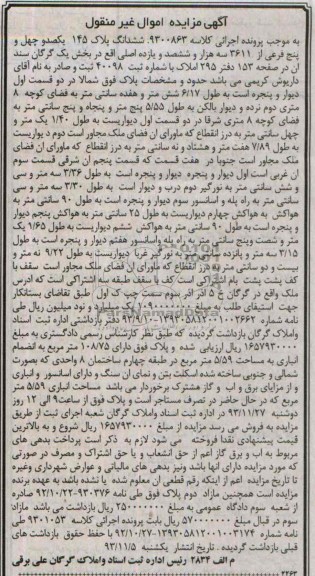 آگهی مزایده اموال غیر منقول
به موجب پرونده اجرائی کلاسه ۹۳۰۰۸۶۳، ششدانگ پلاک ۱۴۵ یکصدو چهل و
پنج فرعی از ۳۶۱۱ سه هزار و ششصد و یازده اصلی واقع در بخش یک گرگان سند
آن در صفحه ۱۵۳ دفتر ۲۹۵ املاک با شماره ثبت ۴۰۰۹۸ ثبت و صادر به نام آقای
داریوش کریمی می باشد حدود و مشخصات پلاک فوق شمالا در دو قسمت اول
دیوار و پنجره است به طول ۶/۱۷ شش متر و هفده سانتی متر به فضای کوچه ۸
متری دوم نرده و دیوار بالکن به طول ۵/۵۵ پنج متر و پنجاه و پنج سانتی متر به
فضای کوچه ۸ متری شرقا در دو قسمت اول دیواریست به طول ۱/۴۰ یک متر و
چهل سانتی متر به درز انقطاع که ماورای آن فضای ملک مجاور است دوم دیواریست
به طول ۷/۸۹ هفت متر و هشتاد و نه سانتی متر به درز انقطاع که ماورای آن فضای
ملک مجاور است جنوبا در هفت قسمت که قسمت پنجم آن شرقی قسمت سوم
آن غربی است اول دیوار و پنجره دیوار و پنجره است به طول ۳/۳۶ سه متر و سی
و شش سانتی متر به نورگیر دوم درب و دیوار است به طول ۳/۳۰ سه متر و سی
سانتی متر به راه پله و آسانسور سوم دیوار و پنجره است به طول ۹۰ سانتی متر به
هواکش به هواکش چهارم دیواریست به طول ۲۵ سانتی متر به هواکش پنجم دیوار
و پنجره است به طول ۹۰ سانتی متر به هواکش ششم دیواریست به طول ۱/۶۵ یک
متر و شصت وپنج سانتی متر به راه پله وآسانسور هفتم دیوار و پنجره است به طول
۳/۱۵ سه متر و پانزده سانتی متر به نورگیر غربا دیواریست به طول ۹/۲۲ نه متر و
بیست و دو سانتی متر به درز انقطاع که ماورای آن فضای ملک مجاور است سقف با
کف پشت بام اشتراکی است کف با سقف طبقه سه اشتراکی است که آدرس
ملک واقع در گرگان خ ۵ آذر آذر سوم سمت چپ ک اول طبق تقاضای بستانکار
جهت استیفای طلب به مبلغ ۱۰۹۰۰۰۰۰۰۰ یک میلیارد و نود میلیون ریال طی
نامه شماره بازداشتی اداره ثبت اسناد
واملاک گرگان بازداشت گردیده که طبق نظر کارشناس رسمی دادگستری به مبلغ
۱۶۵۷۹۳۰۰۰۰ ریال ارزیابی شده و پلاک فوق دارای ۱۰۸/۷۵ متر مربع به انضمام
انباری به مساحت ۵/۵۹ متر مربع در طبقه چهارم ساختمان ۸ واحدی که بصورت
شمالی و جنوبی ساخته شده اسکلت بتن و نمای آن سنگ و دارای آسانسور و انباری
و از مزایای برق و آب و گاز مشترک برخوردار می باشد مساحت انباری ۵/۵۹ متر
مربع که در حال حاضر در تصرف مستاجر است و پلاک فوق از ساعت۹ الی ۱۲ روز
دوشنبه ۹۳/۱۱/۲۷ در اداره ثبت اسناد واملاک گرگان شعبه اجرای ثبت از طریق
مزایده به فروش می رسد مزایده از مبلغ ۱۶۵۷۹۳۰۰۰۰ ریال شروع و به بالاترین
قیمت پیشنهادی نقدا فروخته می شود لازم به ذکر است پرداخت بدهی های
مربوط به آب و برق گاز اعم از حق انشعاب و یا حق اشتراک و مصرف در صورتی
که مورد مزایده دارای آنها باشد ونیز بدهی های مالیاتی و عوارض شهرداری وغیره
تا تاریخ مزایده اعم از اینکه رقم قطعی آن معلوم شده یا نشده باشد به عهده برنده
مزایده است همچنین مازاد دوم پلاک فوق طی نامه ۹۳۰۳۷۶-۹۲/۱۰/۲۲ صادره
از شعبه سوم دادگاه عمومی به مبلغ ۲۵۰۰۰۰۰۰۰ ریال بازداشت می باشد مازاد
سوم در قبال مبلغ ۵۷۰۰۰۰۰۰۰ ریال بابت پرونده اجرائی کلاسه ۹۳۰۱۰۵۳ طی
نامه شماره ۹۲/۱۰/۲۷-۱۳۹۳۰۵۸۱۲۰۰۱۰۰۳۱۷۴ با حفظ حقوق بازداشت های
قبلی بازداشت گردیده . تاریخ انتشار یکشنبه ۹۳/۱۱/۵
م الف ۲۸۳۴ رئیس اداره ثبت اسناد واملاک گرگان علی برقی
۲۲۶۳